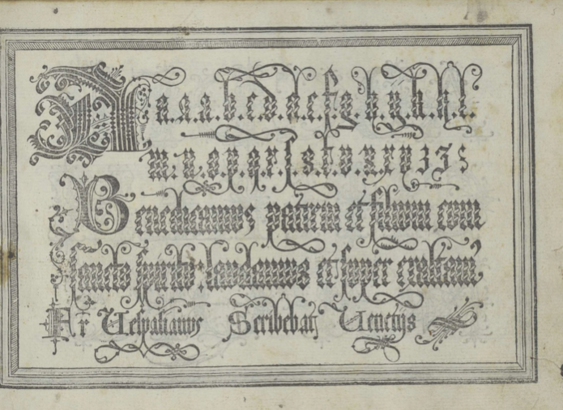 A a.a.a.b.c.d.d.e.f.g.h.
m.n.o.p.q.r.ſ.s.t.v.u.x.y
Benedicamus patrem et filium cum
ſancto ſpiritu laudemus et ſuper exaltem⁹
Fr Veſpaſianus Scribebat Venetijs